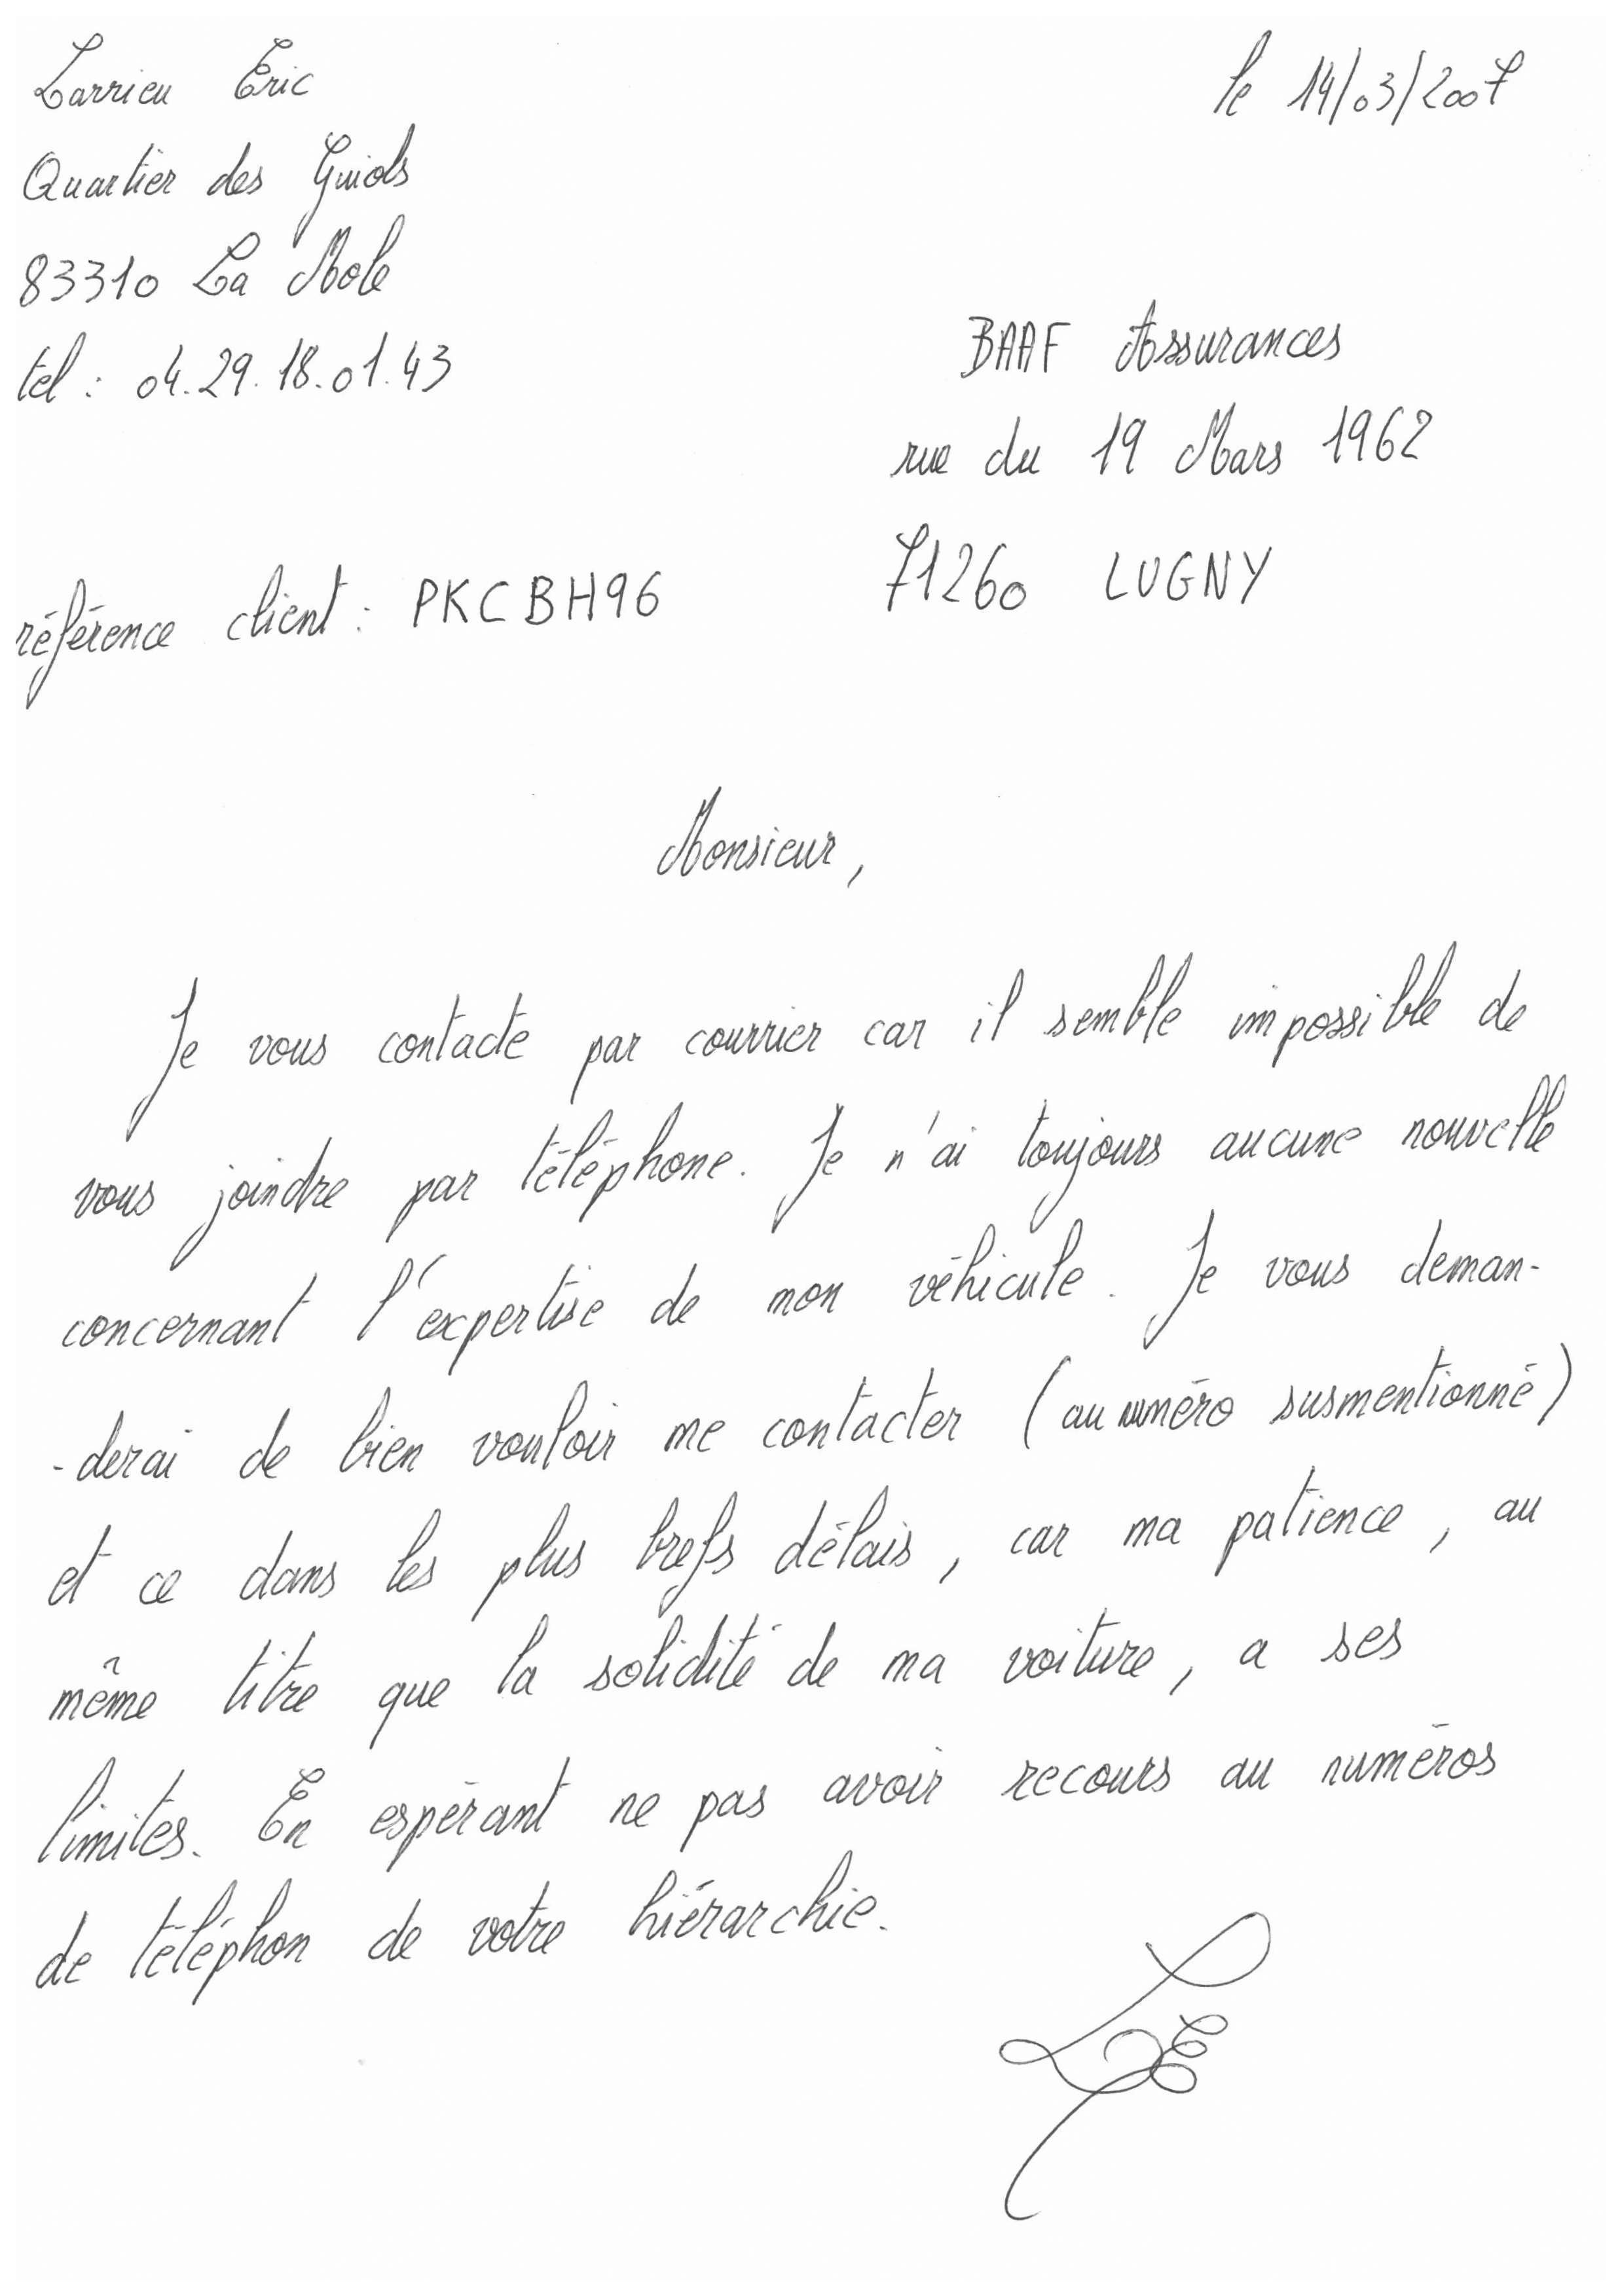 Larrieu Eric
le 14/03/2007
Quartier des Guiols
83310 La Mole
tel : 04.29.18.01.43
BAAF Assurances
rue du 19 Mars 1962
71260 LUGNY
référence client : PKCBH96
Monsieur,
Je vous contacte par courrier car il semble impossible de
vous joindre par téléphone. Je n'ai toujours aucune nouvelle
concernant l'expertise de mon véhicule. Je vous deman-
-derai de bien vouloir me contacter (au numéro susmentionné)
et ce dans les plus brefs délais, car ma patience, au
même titre que la solidité de ma voiture, a ses
limites. En espérant ne pas avoir recours au numéros
de téléphon de votre hiérarchie.
LE